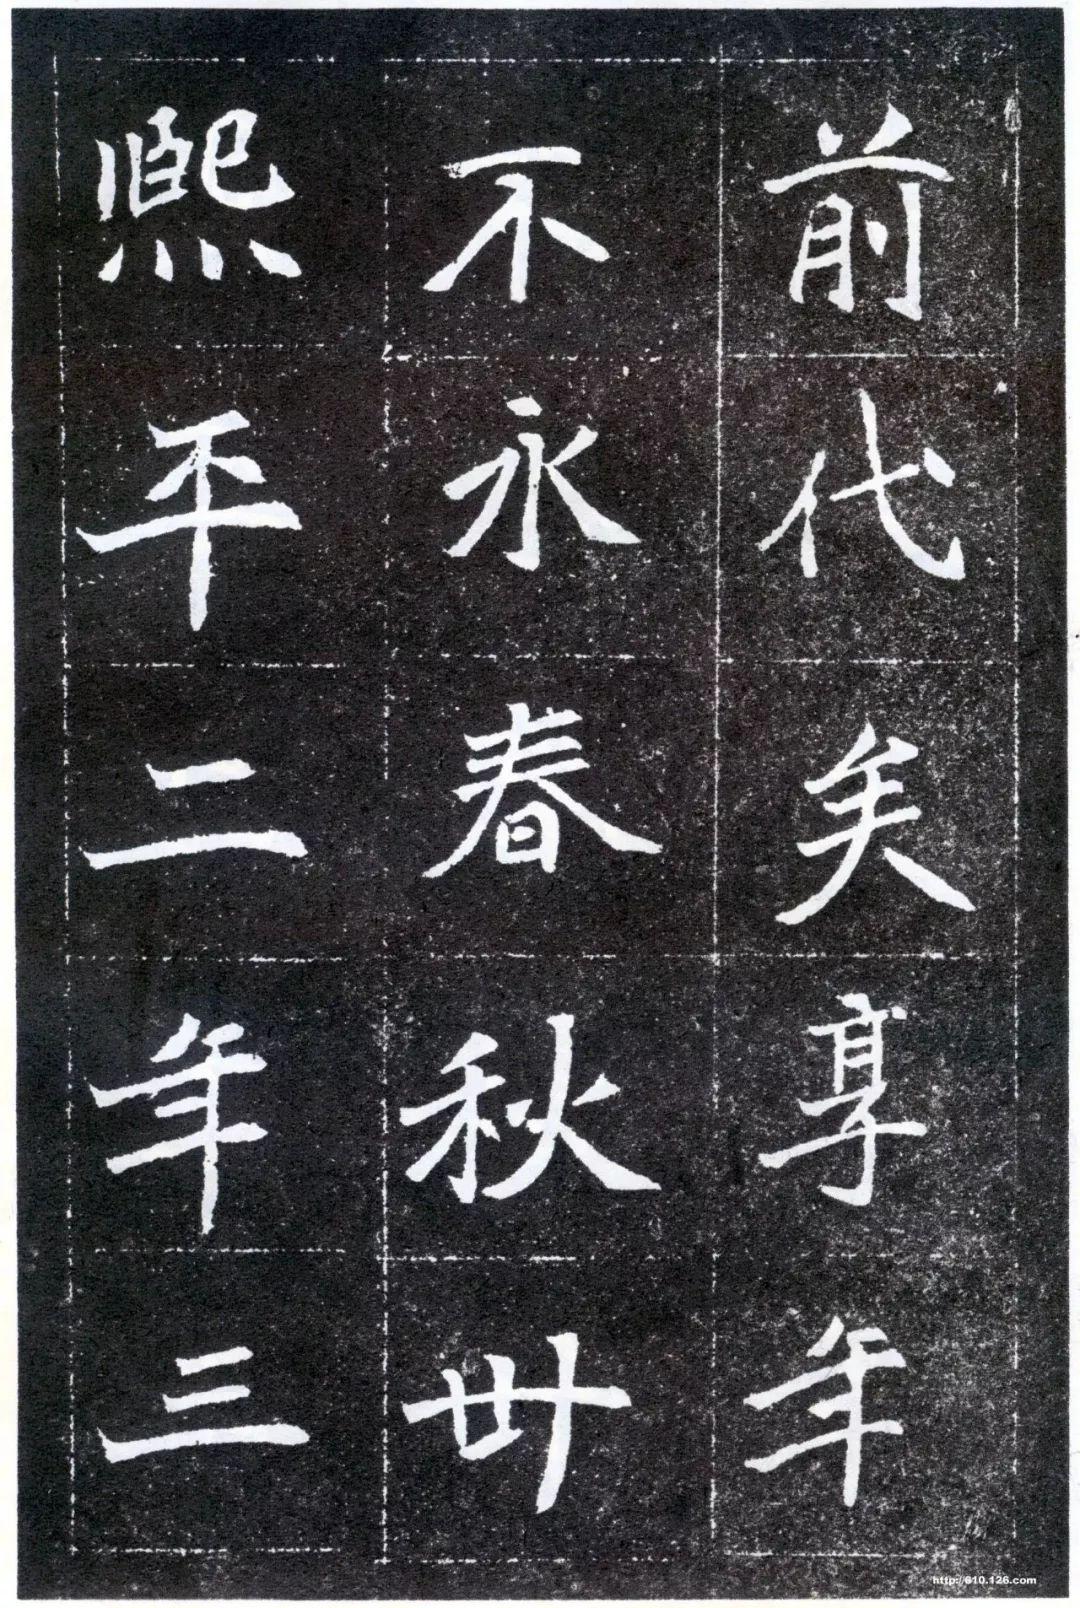 前代矣享年
不永春秋卅
熈平二年三
http://610.126.com